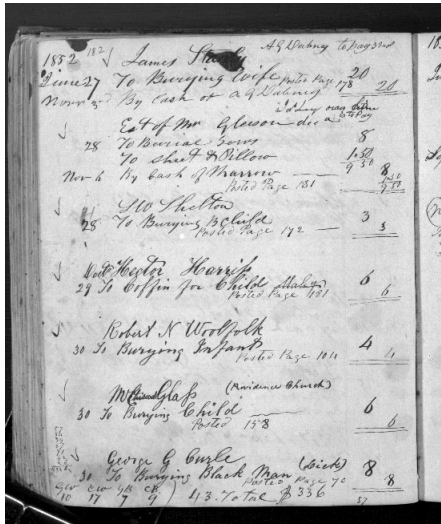 1852 182 James A G Dabney to pay
June 27 To Burying Wife Posted Page 178 20 20
Novr 3d By Cash of A G Dabney
Est of Mr Gleason decd
28 To Burial 8
To Sheet & Pillow 1.50
Nov 6 By Cash of Marrow 9 50 8
Posted Page 131 1.50 9.50
S W Shelton
28 To Burying Child 3
Posted Page 172 3
Hector Harriss
29 To Coffin for Child 6
Posted Page 131 6
Robert N Woolfolk
30 To Burying Infant 4
Posted Page 104 4
Glass (Providence Church)
30 To Burying Child 6
Posted 158 6
George G Curle
30 To Burying Black Man (Dick) 8
Posted Page 70 8
10 17 7 9 43. Total $336